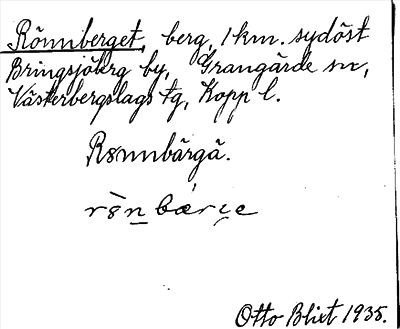 Rönnberget, berg, 1 km. sydöst
Bringsjöberg by, Grangärde sn,
Västerbergslags tg, Kopp l.
Rönnbärgä.
Otto Blixt 1935.